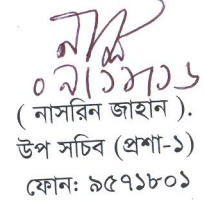 ( নাসরিন জাহান ).
উপ সচিব (প্রশা-১)
ফোন: ৯৫৭১৮০১